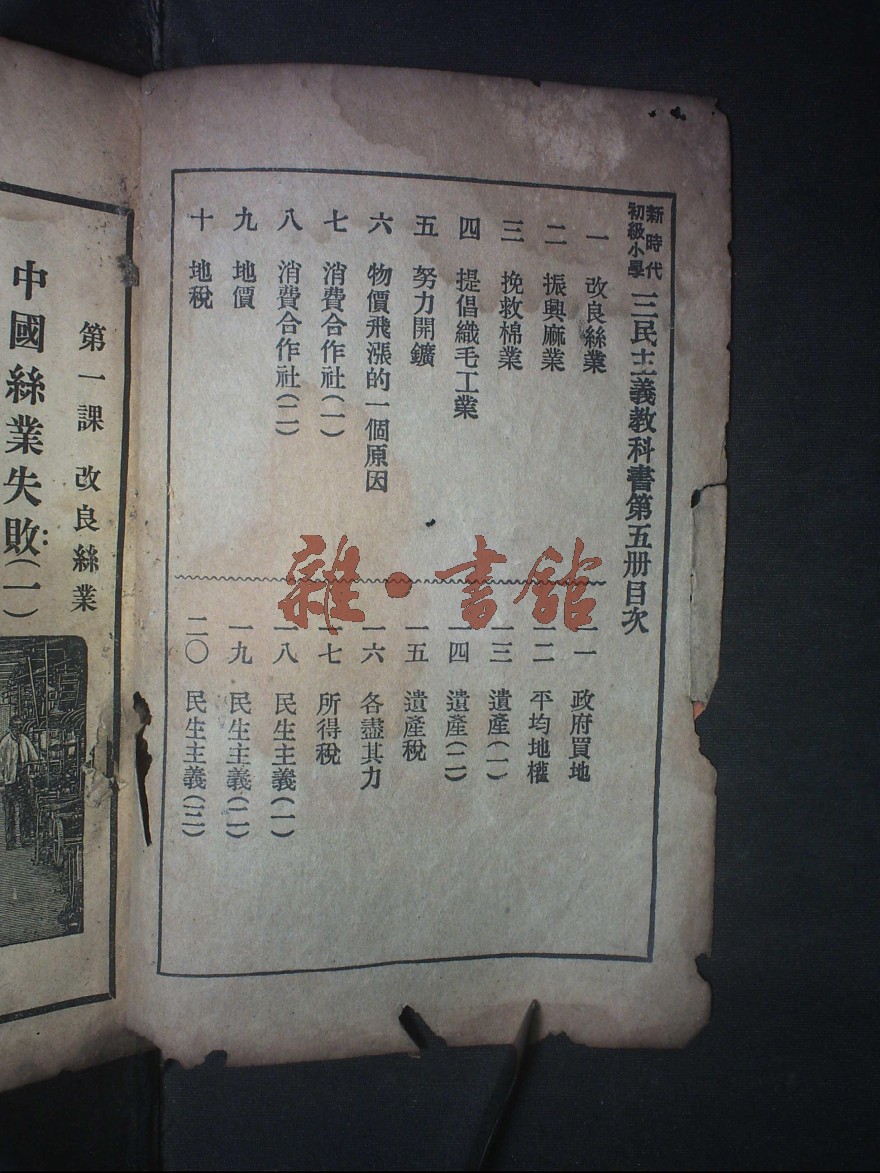 新時代
初級小學
三民主義教科書第五册目次
一 改良絲業
二 振興麻業
三 挽救棉業
四 提倡織毛工業
五 努力開鑛
六 物價飛漲的一個原因
七 消費合作社(一)
八 消費合作社(二)
九 地價
十 地稅
一一 政府買地
一二 平均地權
一三 遺產(一)
一四 遺產(二)
一五 遺產稅
一六 各盡其力
一七 所得稅
一八 民生主義(一)
一九 民生主義(二)
二〇 民生主義(三)
第一課 改良絲業
中國絲業失敗(一)
雜·書館